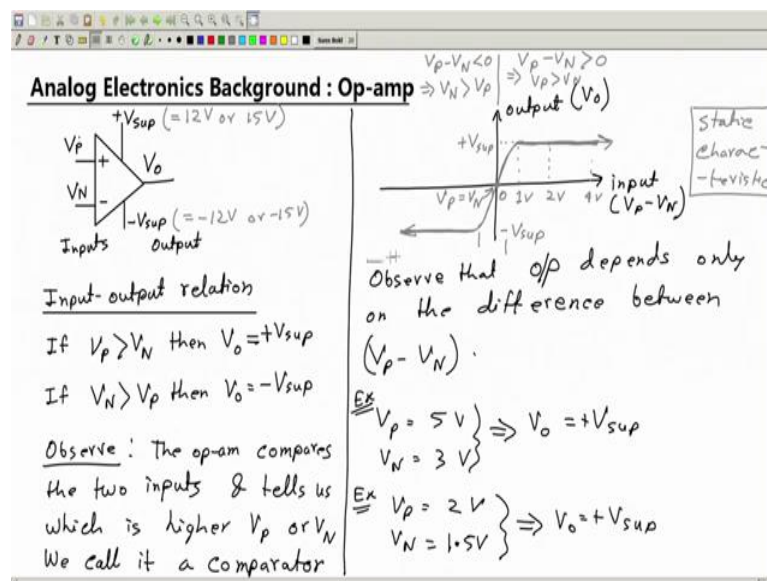 Sans Bold
Analog Electronics Background : Op-amp
+Vsup (=12V or 15V)
Vp
+
Vo
VN
-
-Vsup (=-12V or -15V)
Inputs
output
Input-output relation
If Vp>VN then Vo=+Vsup
If VN>Vp then Vo=-Vsup
Observe: The op-am compares
the two inputs & tells us
which is higher Vp or VN
We call it a comparator
Vp-VN<0 | Vp-VN>0
⇒ VN>Vp | ⇒ Vp>VN
output (Vo)
+Vsup
Vp=VN
0 1V 2V 4V
input
(Vp-VN)
-Vsup
Static
Charac-
-teristic
Observe that o/p depends only
on the difference between
(Vp-VN).
Ex
Vp = 5 V
VN = 3 V} ⇒ Vo = +Vsup
Ex
Vp = 2 V
VN = 1.5V} ⇒ Vo=+Vsup